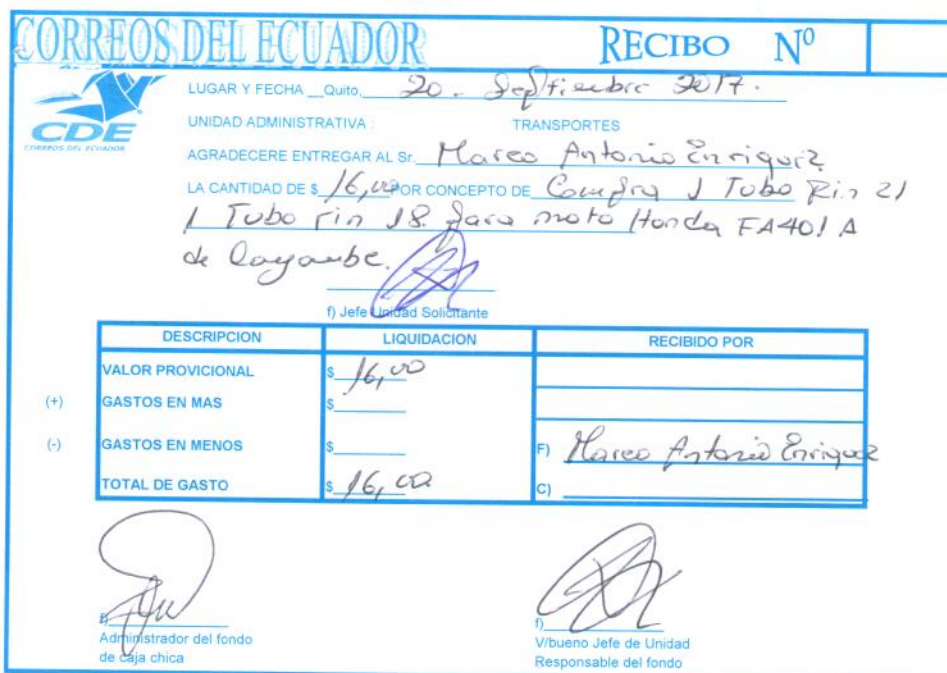 CORREOS DEL ECUADOR RECIBO Nº
CDE
CORREOS DEL ECUADOR
LUGAR Y FECHA __Quito, 20. Septiembre 2017.
UNIDAD ADMINISTRATIVA : TRANSPORTES
AGRADECERE ENTREGAR AL Sr. Marco Antonio Enriquez
LA CANTIDAD DE $ 16,00 POR CONCEPTO DE Compra 1 Tubo Rin 21
1 Tubo rin 18. para moto Honda FA401A
de Cayambe.
f) Jefe Unidad Solicitante
DESCRIPCION LIQUIDACION RECIBIDO POR
VALOR PROVICIONAL $ 16,00
(+) GASTOS EN MAS $
(-) GASTOS EN MENOS $ F) Marco Antonio Enriquez
TOTAL DE GASTO $ 16,00 C)
f) f)
Administrador del fondo V/bueno Jefe de Unidad
de caja chica Responsable del fondo